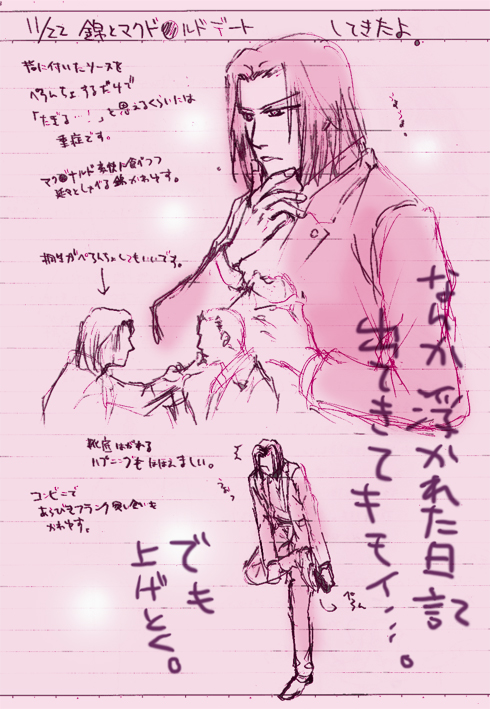 11/22 錦とマクド●ルドデート してきたよ。
指に付いたソースを
ぺろんちょするだけで
「たぎる…!」と思えるくらいには
重症です。
マク●ナルド素敵に食べつつ
延々としゃべる錦かわゆす。
桐生がぺろんちょしてもいいです。
なんか浮かれた日記
出てきてキモイ…。
靴底はがれる
ハプニングもほほえましい。
コンビニで
あらびきフランク買い食いも
かわゆす。
でも
上げとく。